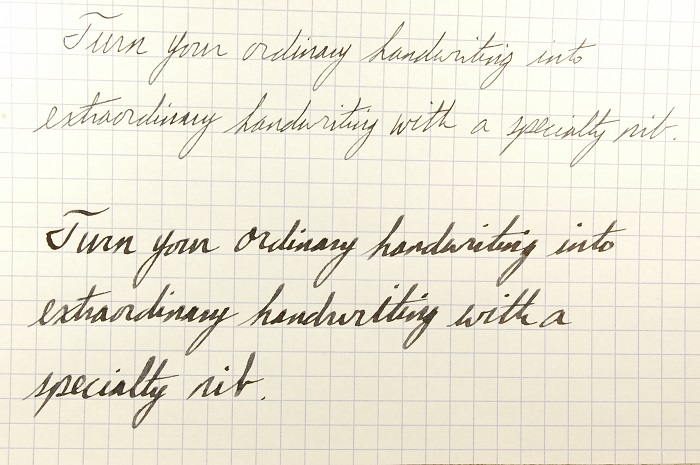 Turn your ordinary handwriting into
extraordinary handwriting with a specialty nib.
Turn your ordinary handwriting into
extraordinary handwriting with a
specialty nib.